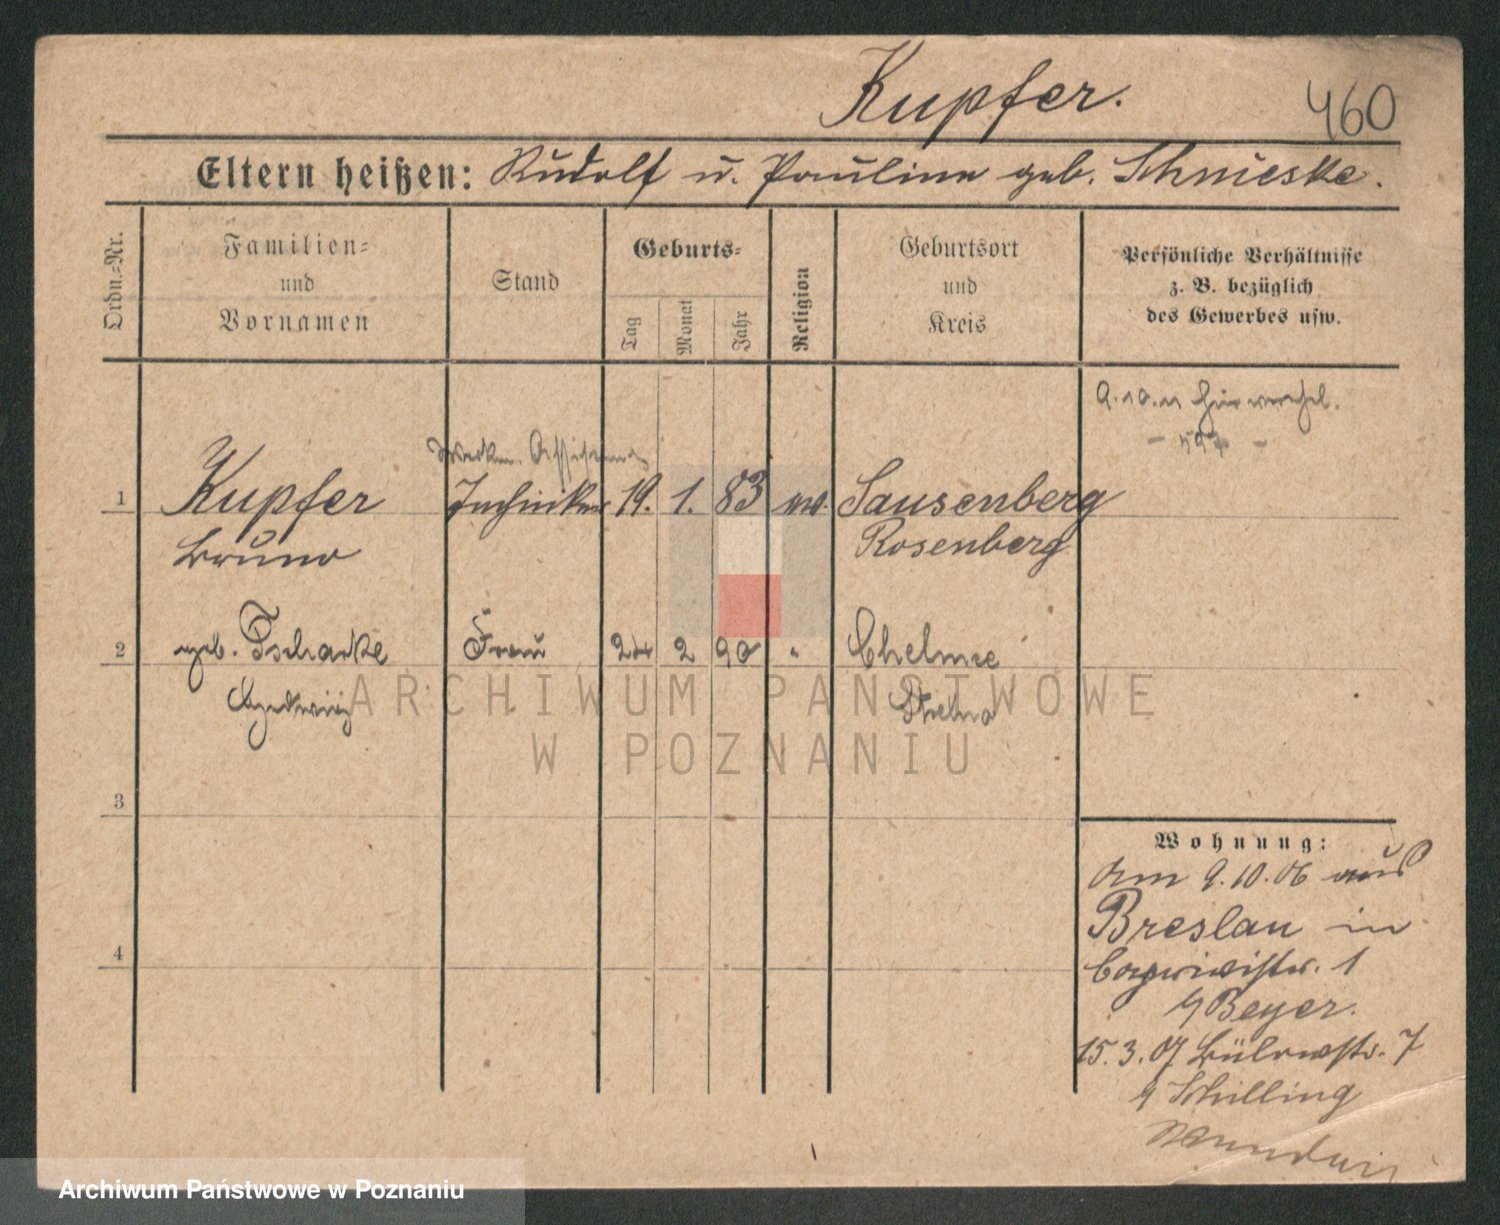 Kupfer.
460
Eltern heißen: Rudolf u. Pauline geb. Schnieske.
Ordn.-Nr.
Familien-
und
Vornamen
Stand
Geburts-
Tag
Monat
Jahr
Religion
Geburtsort
und
Kreis
Persönliche Verhältnisse
z. B. bezüglich
des Gewerbes usw.
9.10.11
- 597 -
1 Kupfer Techniker 19. 1. 83 ev. Sausenberg
Bruno Rosenberg
2 geb. Tscharke Frau 24 2 90 " Chelmce
Hedwig
ARCHIWUM PAŃSTWOWE
W POZNANIU
3
4
Wohnung:
Am 9.10.06 aus
Breslau in
1
b/Beyer.
15.3.07 Bülowstr. 7
b/Schilling
Archiwum Państwowe w Poznaniu